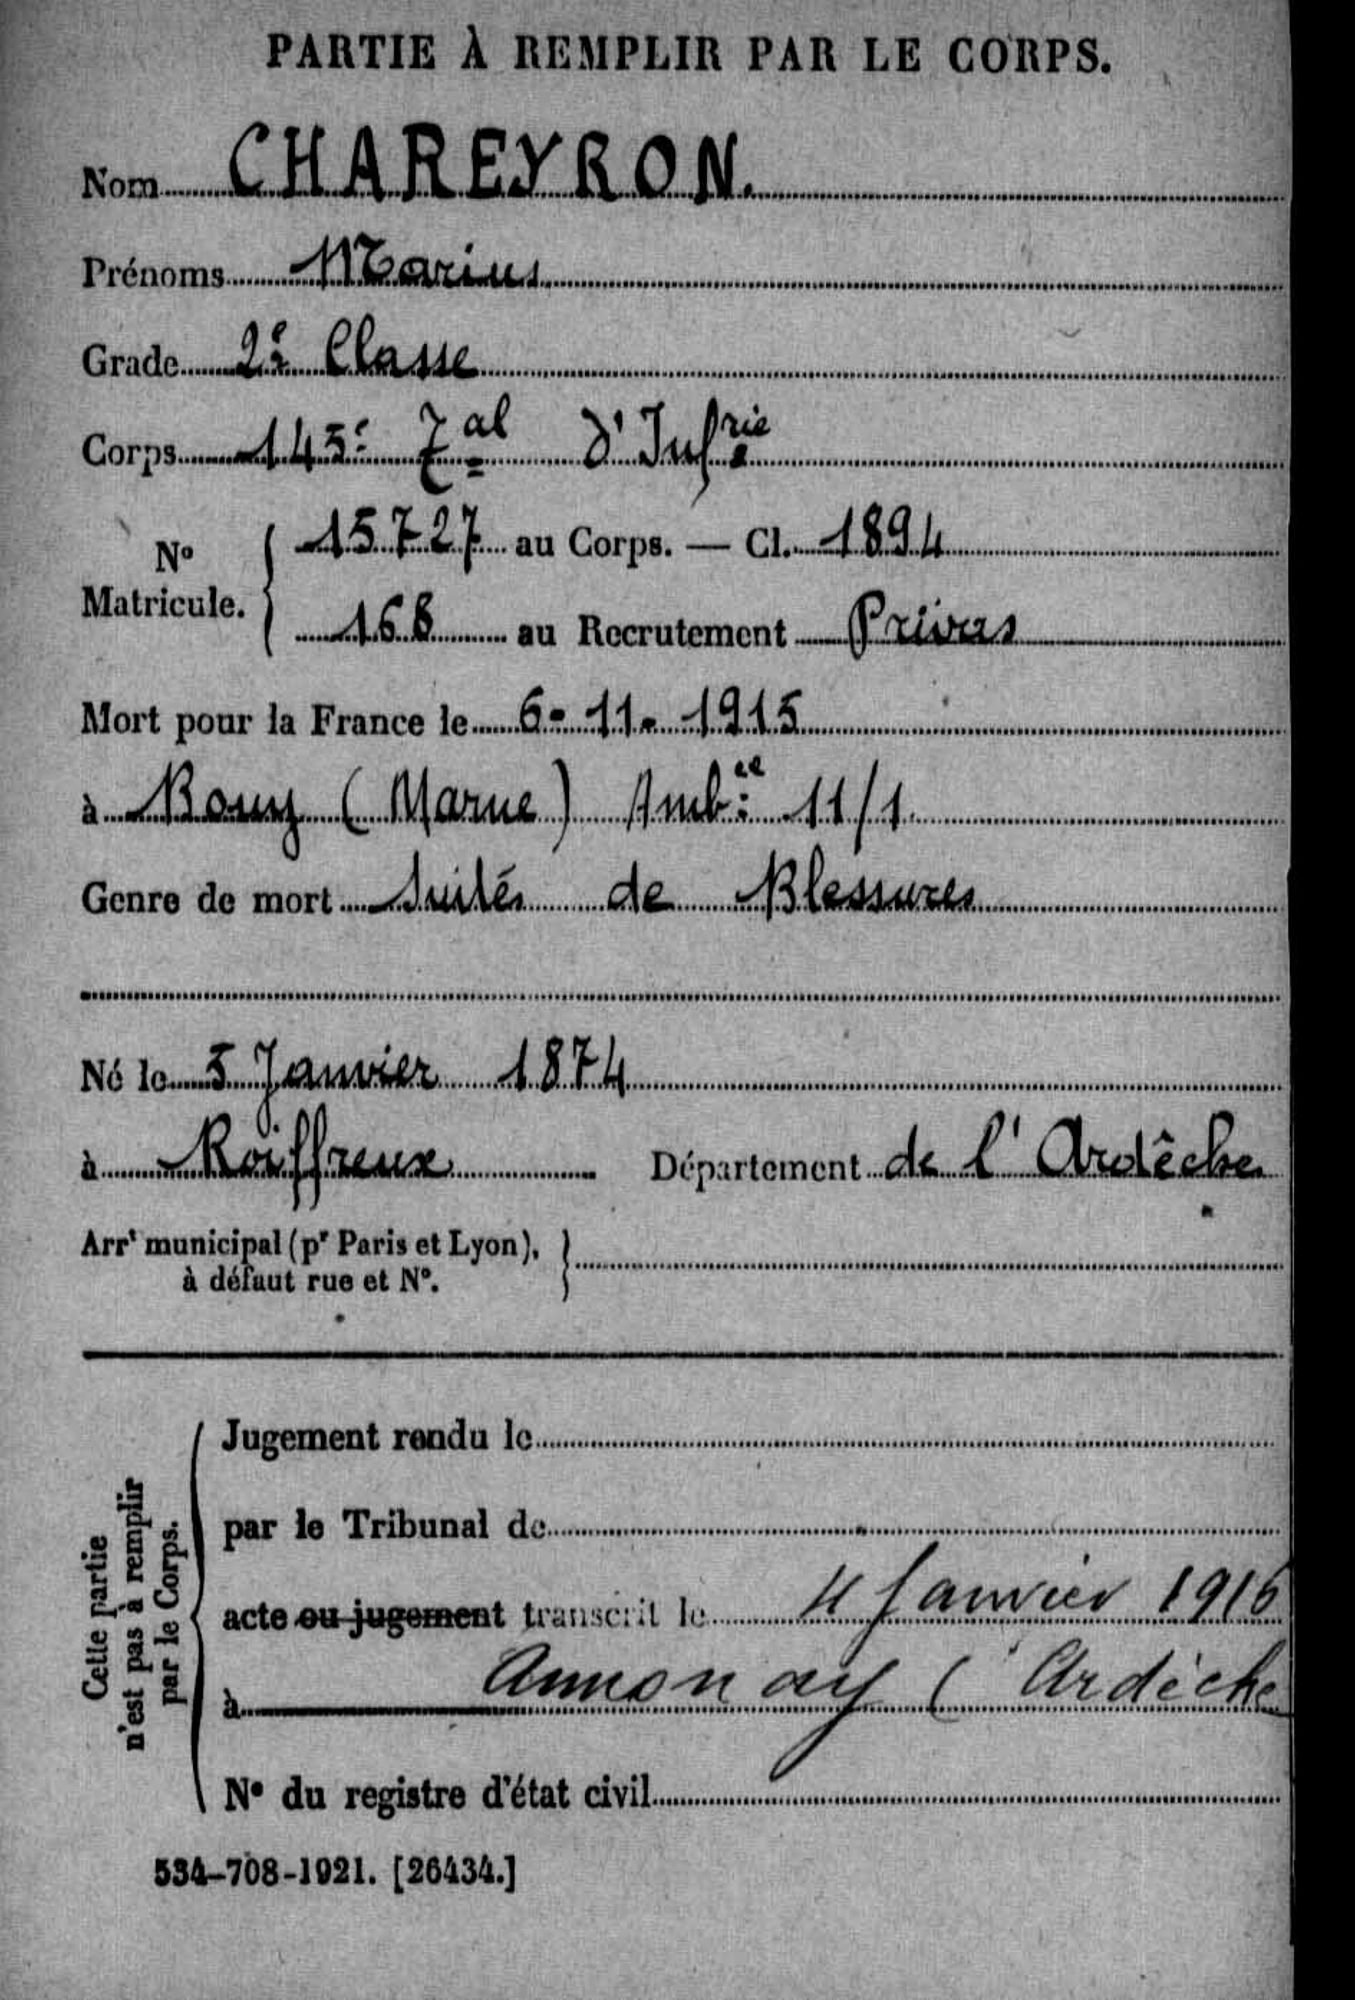 PARTIE À REMPLIR PAR LE CORPS.
Nom CHAREYRON.
Prénoms Marius
Grade 2e Classe
Corps 145e Tal d'Infrie
No Matricule. { 15727 au Corps. — Cl. 1894
168 au Recrutement Privas
Mort pour la France le 6-11-1915
à Bouzy (Marne) Ambce 11/1
Genre de mort Suites de Blessures
Né le 5 Janvier 1874
à Roiffieux Département de l'Ardèche
Arrt municipal (pr Paris et Lyon),
à défaut rue et No.
Cette partie
n'est pas à remplir
par le Corps.
Jugement rendu le
par le Tribunal de
acte ou jugement transcrit le 4 Janvier 1916
à Annonay (Ardèche
No du registre d'état civil
534-708-1921. [26434.]